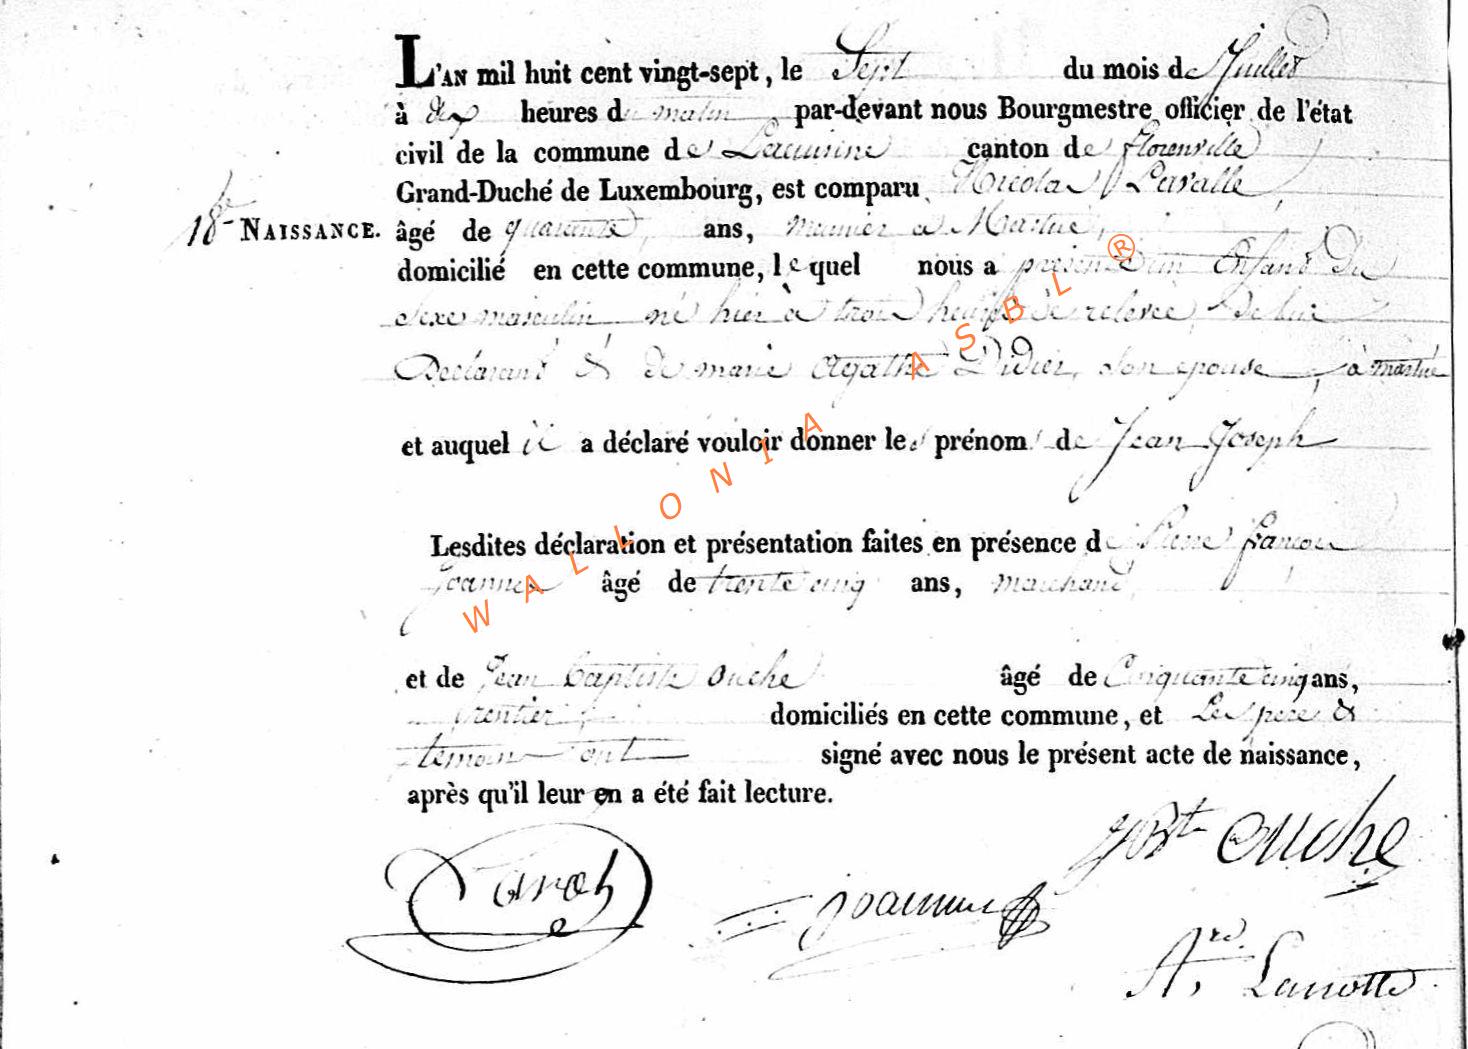 L'AN mil huit cent vingt-sept, le Sept du mois de Juillet
à dix heures du matin par-devant nous Bourgmestre officier de l'état
civil de la commune de Lacuisine canton de florenville
Grand-Duché de Luxembourg, est comparu Nicolas Lavalle,
18e NAISSANCE. âgé de quarante, ans, meunier à Martué,
domicilié en cette commune, lequel nous a présenté un Enfant Du
Sexe masculin né hier à trois heures de relevée, De lui
Déclarant & De marie Agathe Didier, Son epouse, à martué
et auquel il a déclaré vouloir donner les prénoms de Jean Joseph
Lesdites déclaration et présentation faites en présence de Pierre françois
Joannes âgé de trente cinq ans, marchand,
et de Jean baptiste ouche âgé de Cinquante cinq ans,
rentier, domiciliés en cette commune, et Les pere &
temoins ont signé avec nous le présent acte de naissance,
après qu'il leur en a été fait lecture.
JBte ouche
joannes
Lanotte
WALLONIA ASBL ®